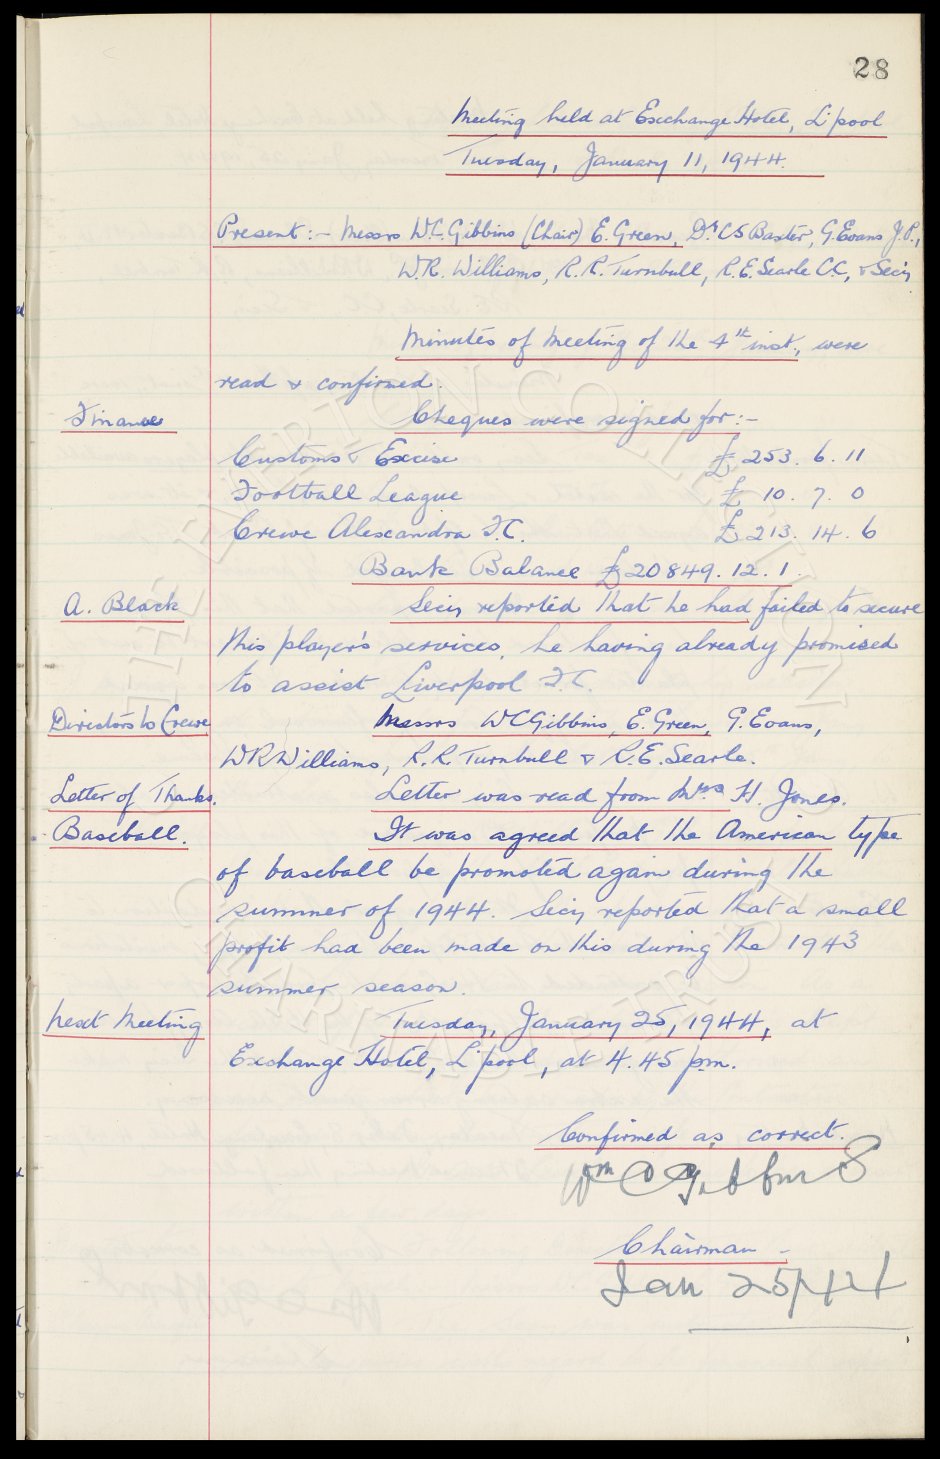 28
Meeting held at Exchange Hotel, L'pool
Tuesday, January 11, 1944.
Present:- Messrs W.C. Gibbins (Chair) E. Green, Dr. C S Baxter, G. Evans J.P.,
W.R. Williams, R.R. Turnbull, R.E. Searle C.C, & Secy
Minutes of Meeting of the 4th inst., were
read & confirmed.
Finance Cheques were signed for:-
Customs & Excise £ 253. 6. 11
Football League £ 10. 7. 0
Crewe Alexandra F.C. £ 213. 14. 6
Bank Balance £20849. 12. 1.
A. Black Secy reported that he had failed to secure
this player's services, he having already promised
to assist Liverpool F.C.
Directors to Crewe Messrs W C Gibbins, E. Green, G. Evans,
W R Williams, R.R. Turnbull & R.E. Searle.
Letter of Thanks. Letter was read from Mrs H. Jones.
Baseball. It was agreed that the American type
of baseball be promoted again during the
summer of 1944. Secy reported that a small
profit had been made on this during the 1943
summer season.
Next Meeting Tuesday, January 25, 1944, at
Exchange Hotel, L'pool, at 4.45 p.m.
Confirmed as correct.
Wm C Gibbins
Chairman -
Jan 25/44
THE EVERTON COLLECTION
CHARITABLE TRUST